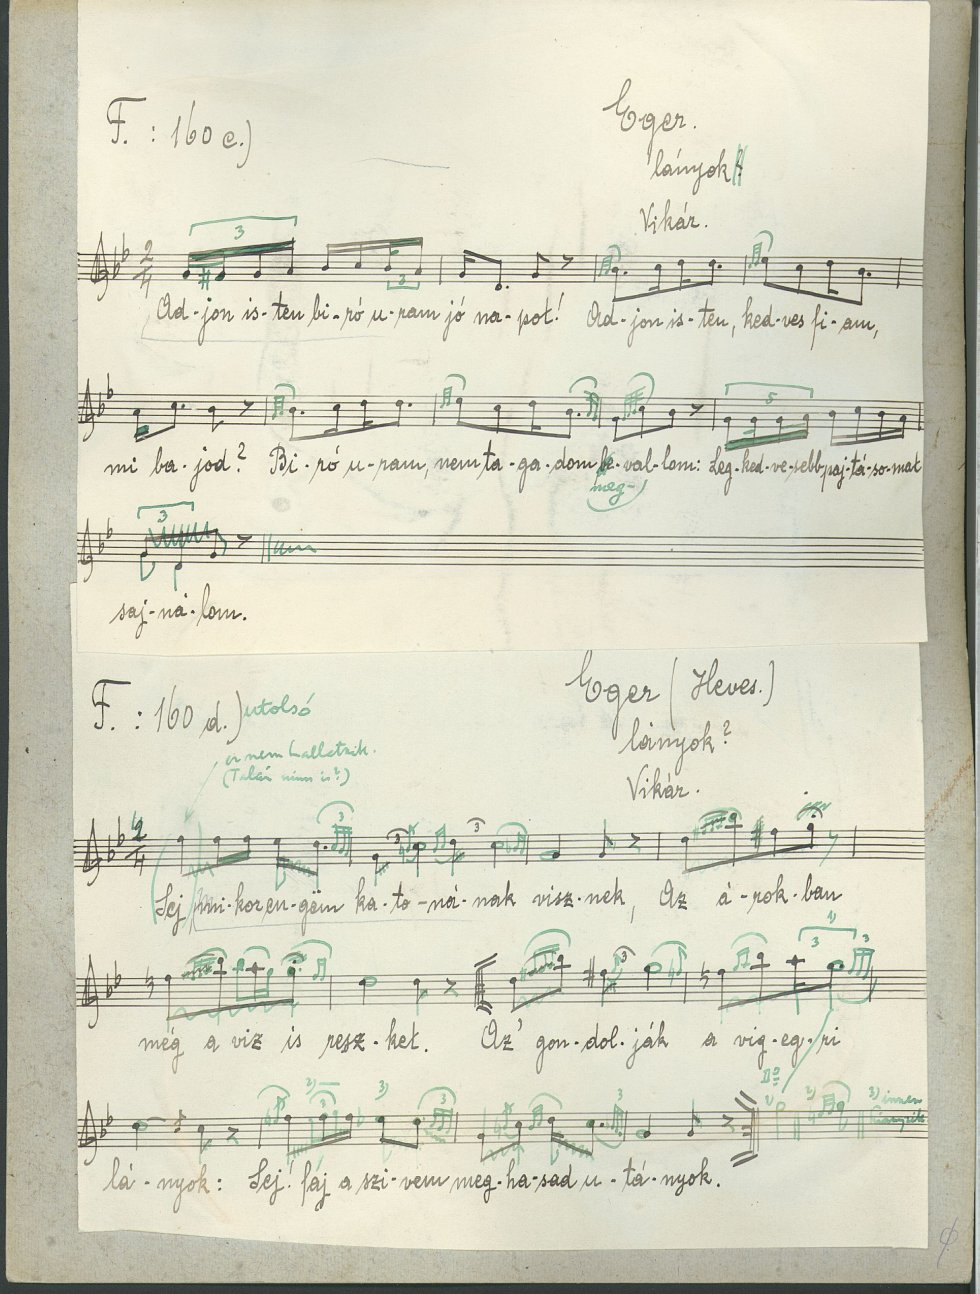 F. : 160 c.)
Eger.
lányok?
Vikár.
3
3
2/4
Ad-jon is-ten bi-ró u-ram jó na-pot! Ad-jon is-ten, ked-ves fi-am,
5
mi ba-jod? Bi-ró u-ram, nem ta-ga-dom be-val-lom: Leg-ked-ve-sebb paj-tá-so-mat
meg-
3
saj-ná-lom.
F. : 160 d.) utolsó
Eger (Heves.)
lányok?
Vikár.
ez nem hallatszik.
(Talán nincs is?)
3 3 3
2/4
Sej mi-kor en-gëm ka-to-ná-nak visz-nek, Az á-rok-ban
3 1) 3 3
még a viz is resz-ket. Az' gon-dol-ják a vig-eg-ri
2) 3 3) 3 3 1) 2) 3) innen
hiányzik
lá-nyok: Sej! fáj a szi-vem meg-ha-sad u-tá-nyok.